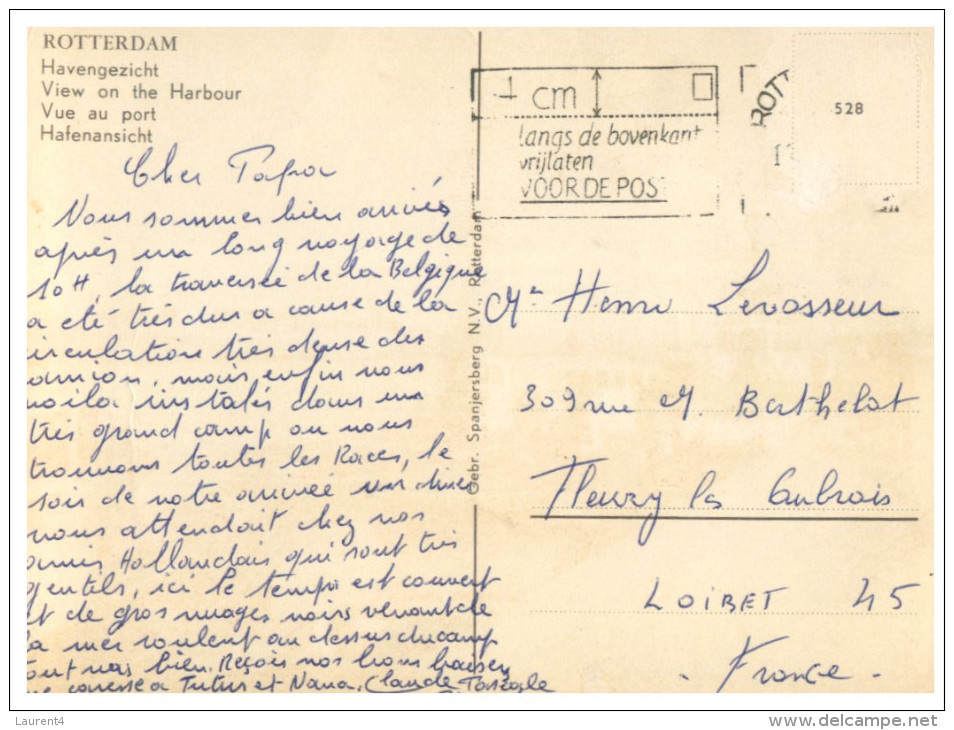 ROTTERDAM
Havengezicht
View on the Harbour
Vue au port
Hafenansicht
Cher Papa
Nous sommes bien arrivés
après un long voyage de
10H, la traversée de la Belgique
a été très dur a cause de la
circulation très dense des
camion, mais enfin nous
voila instalés dans un
très grand camp ou nous
trouvons toutes les Races, le
soir de notre arrivée un diner
nous attendait chez nos
amis Hollandais qui sont très
gentils, ici le temps est couvert
et de gros nuages noirs venant de
la mer roulent au dessus du camp
tout vas bien. Reçois nos bons baisers
caresse a Tutur et Nana. Claude Pascale
Gebr. Spanjersberg N.V., Rotterdam
1 cm
langs de bovenkant
vrijlaten
VOOR DE POST
ROTT
528
Mr Henri Levasseur
309 rue M. Berthelot
Fleury les Aubrais
LOIRET 45
- France -
Laurent4
http://www.delcampe.net